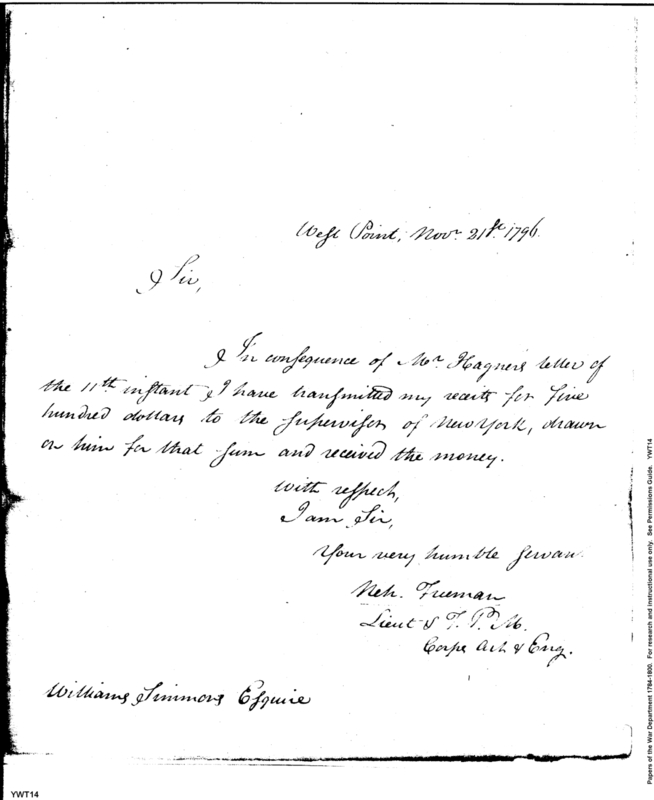 West Point, Novr. 21st. 1796.
Sir,
In consequence of Mr. Hagner's letter of
the 11th instant I have transmitted my receits for five
hundred dollars to the supervisor of New York, drawn
on him for that sum and received the money.
With respect,
I am Sir,
Your very humble Servan
Neh. Freeman
Lieut & T. P. M.
Corps Art & Eng.
William Simmons Esquire
YWT14
Papers of the War Department 1784-1800. For research and instructional use only. See Permissions Guide. YWT14